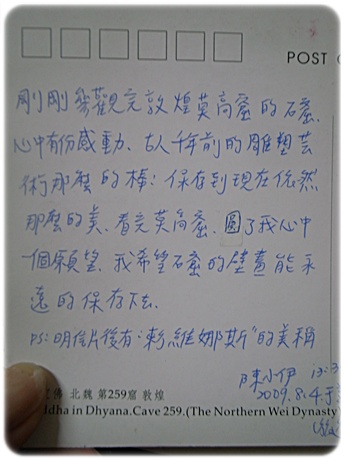 POST
剛剛參觀完敦煌莫高窟的石窟、
心中有份感動、古人千年前的雕塑芸
術那麼的棒：保存到現在依然
那麼的美、看完莫高窟、圓了我心中
一個願望、我希望石窟的壁畫能永
遠的保存下去.
PS:明信片後有"東方維娜斯"的美稱
陳小伊
2009.8.4.于
佛 北魏 第259窟 敦煌
ddha in Dhyana.Cave 259.(The Northern Wei Dynasty